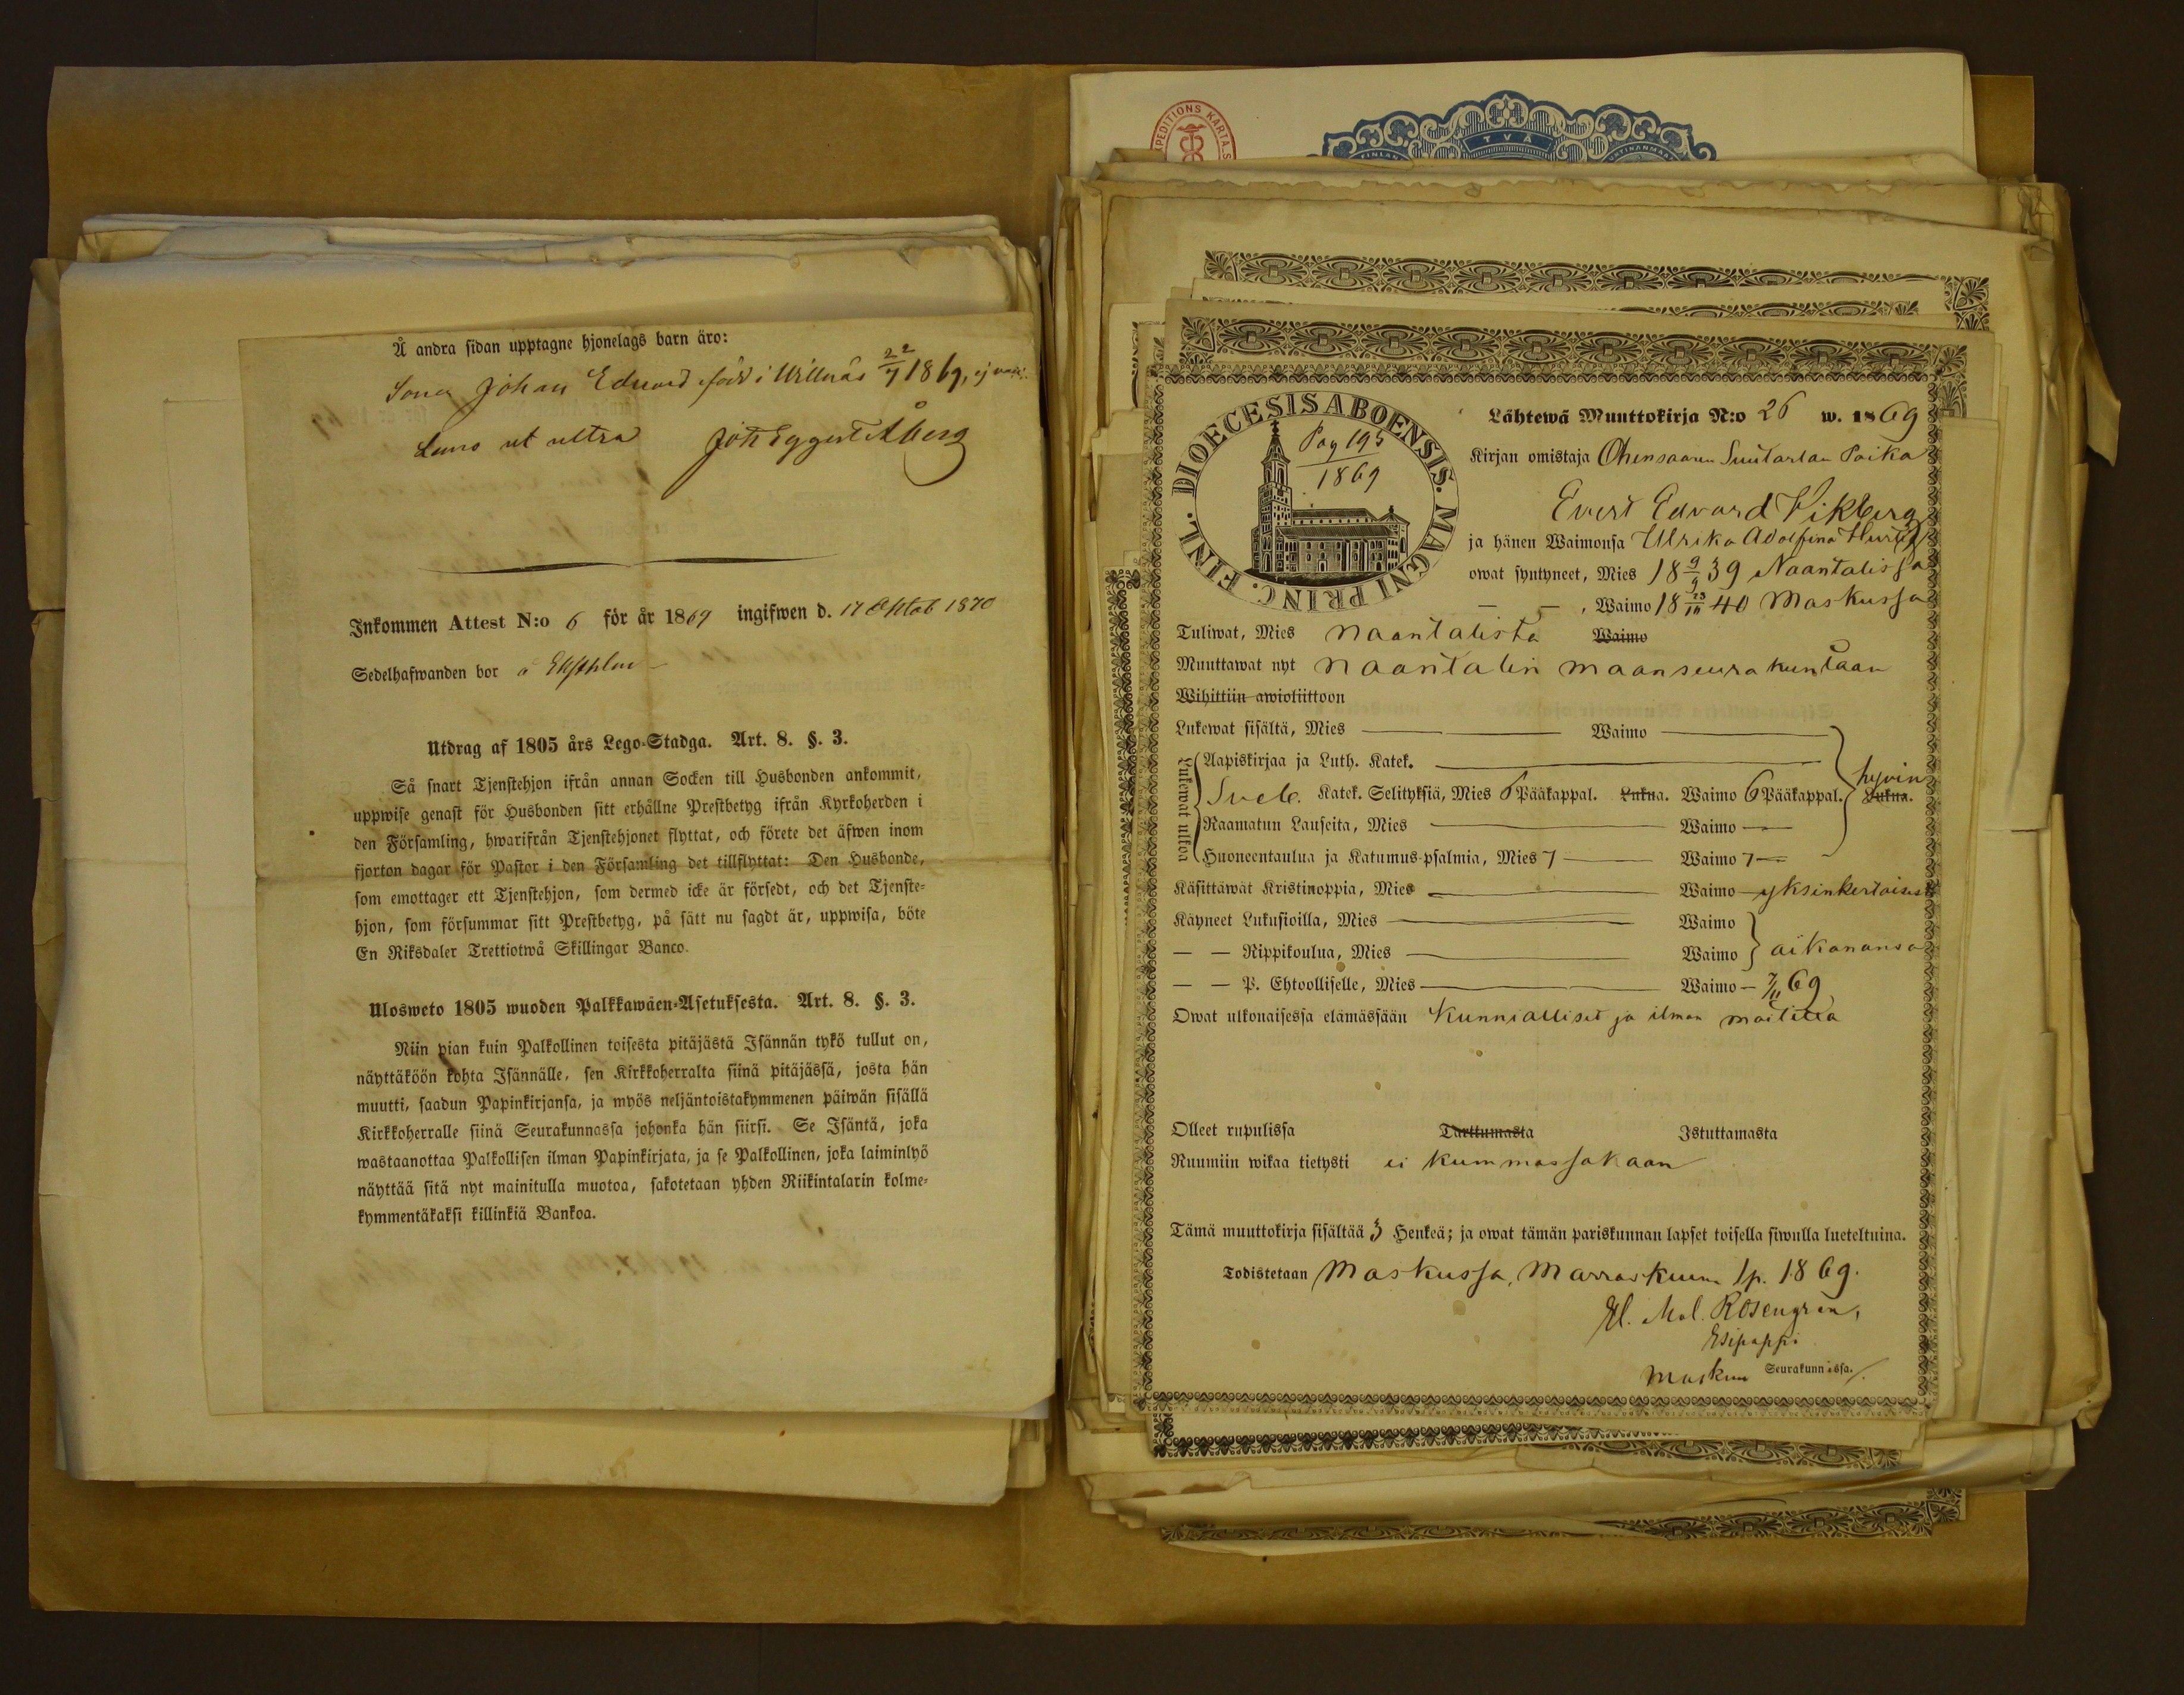 Å andra sidan upptagne hjonelags barn äro:
Sonen Johan Eduard född i Willnäs 22/7 1869, ej vacc.
Lemo ut ultra Joh Eggert Åberg
Inkommen Attest N:o 6 för år 1869 ingifwen d. 17 Oktob 1870
Sedelhafwanden bor å
Utdrag af 1805 års Lego-Stadga. Art. 8. §. 3.
Så snart Tjenstehjon ifrån annan Socken till Husbonden ankommit,
uppwise genast för Husbonden sitt erhållne Prestbetyg ifrån Kyrkoherden i
den Församling, hwarifrån Tjenstehjonet flyttat, och förete det äfwen inom
fjorton dagar för Pastor i den Församling det tillflyttat: Den Husbonde,
som emottager ett Tjenstehjon, som dermed icke är försedt, och det Tjenste-
hjon, som försummar sitt Prestbetyg, på sätt nu sagdt är, uppwisa, böte
En Riksdaler Trettiotwå Skillingar Banco.
Ulosweto 1805 wuoden Palkkawäen-Asetuksesta. Art. 8. §. 3.
Niin pian kuin Palkollinen toisesta pitäjästä Isännän tykö tullut on,
näyttäköön kohta Isännälle, sen Kirkkoherralta siinä pitäjässä, josta hän
muutti, saadun Papinkirjansa, ja myös neljäntoistakymmenen päiwän sisällä
Kirkkoherralle siinä Seurakunnassa johonka hän siirsi. Se Isäntä, joka
wastaanottaa Palkollisen ilman Papinkirjata, ja se Palkollinen, joka laiminlyö
näyttää sitä nyt mainitulla muotoa, sakotetaan yhden Riikintalarin kolme-
kymmentäkaksi killinkiä Bankoa.
EXPEDITIONS KARTA. S
TVÅ
FINLAN
DIOECESIS ABOENSIS. MAGNI PRINC. FINL.
Pag 195
1869
Lähtewä Muuttokirja N:o 26 w. 1869
Kirjan omistaja Ohensaaren Suutarlan Poika
Evert Edvard Vikberg
ja hänen Waimonsa Ulrika Adolfina
owat syntyneet, Mies 18 9/9 39 Naantalissa
— — , Waimo 18 23/11 40 Maskussa
Tuliwat, Mies Naantalista Waimo
Muuttawat nyt Naantalin maanseurakuntaan
Wihittiin awioliittoon
Lukewat sisältä, Mies — Waimo —
Lukewat ulkoa
Aapiskirjaa ja Luth. Katek. —
Sveb. Katek. Selityksiä, Mies 6 Pääkappal. Lukua. Waimo 6 Pääkappal. Lukua. hyvin
Raamatun Lauseita, Mies — Waimo —
Huoneentaulua ja Katumus-psalmia, Mies 7 — Waimo 7 —
Käsittäwät Kristinoppia, Mies — Waimo — yksinkertaisesti
Käyneet Lukusioilla, Mies — Waimo
— — Rippikoulua, Mies — Waimo aikanansa
— — P. Ehtoolliselle, Mies — Waimo — 7/11 69
Owat ulkonaisessa elämässään Kunnialliset ja ilman moitetta
Olleet rupulissa Tarttumasta Istuttamasta
Ruumiin wikaa tietysti ei kummassakaan
Tämä muuttokirja sisältää 3 Henkeä; ja owat tämän pariskunnan lapset toisella siwulla lueteltuina.
Todistetaan Maskussa, Marraskuun 1 p. 1869.
Rosengren,
Esipappi
Maskun Seurakunnassa.